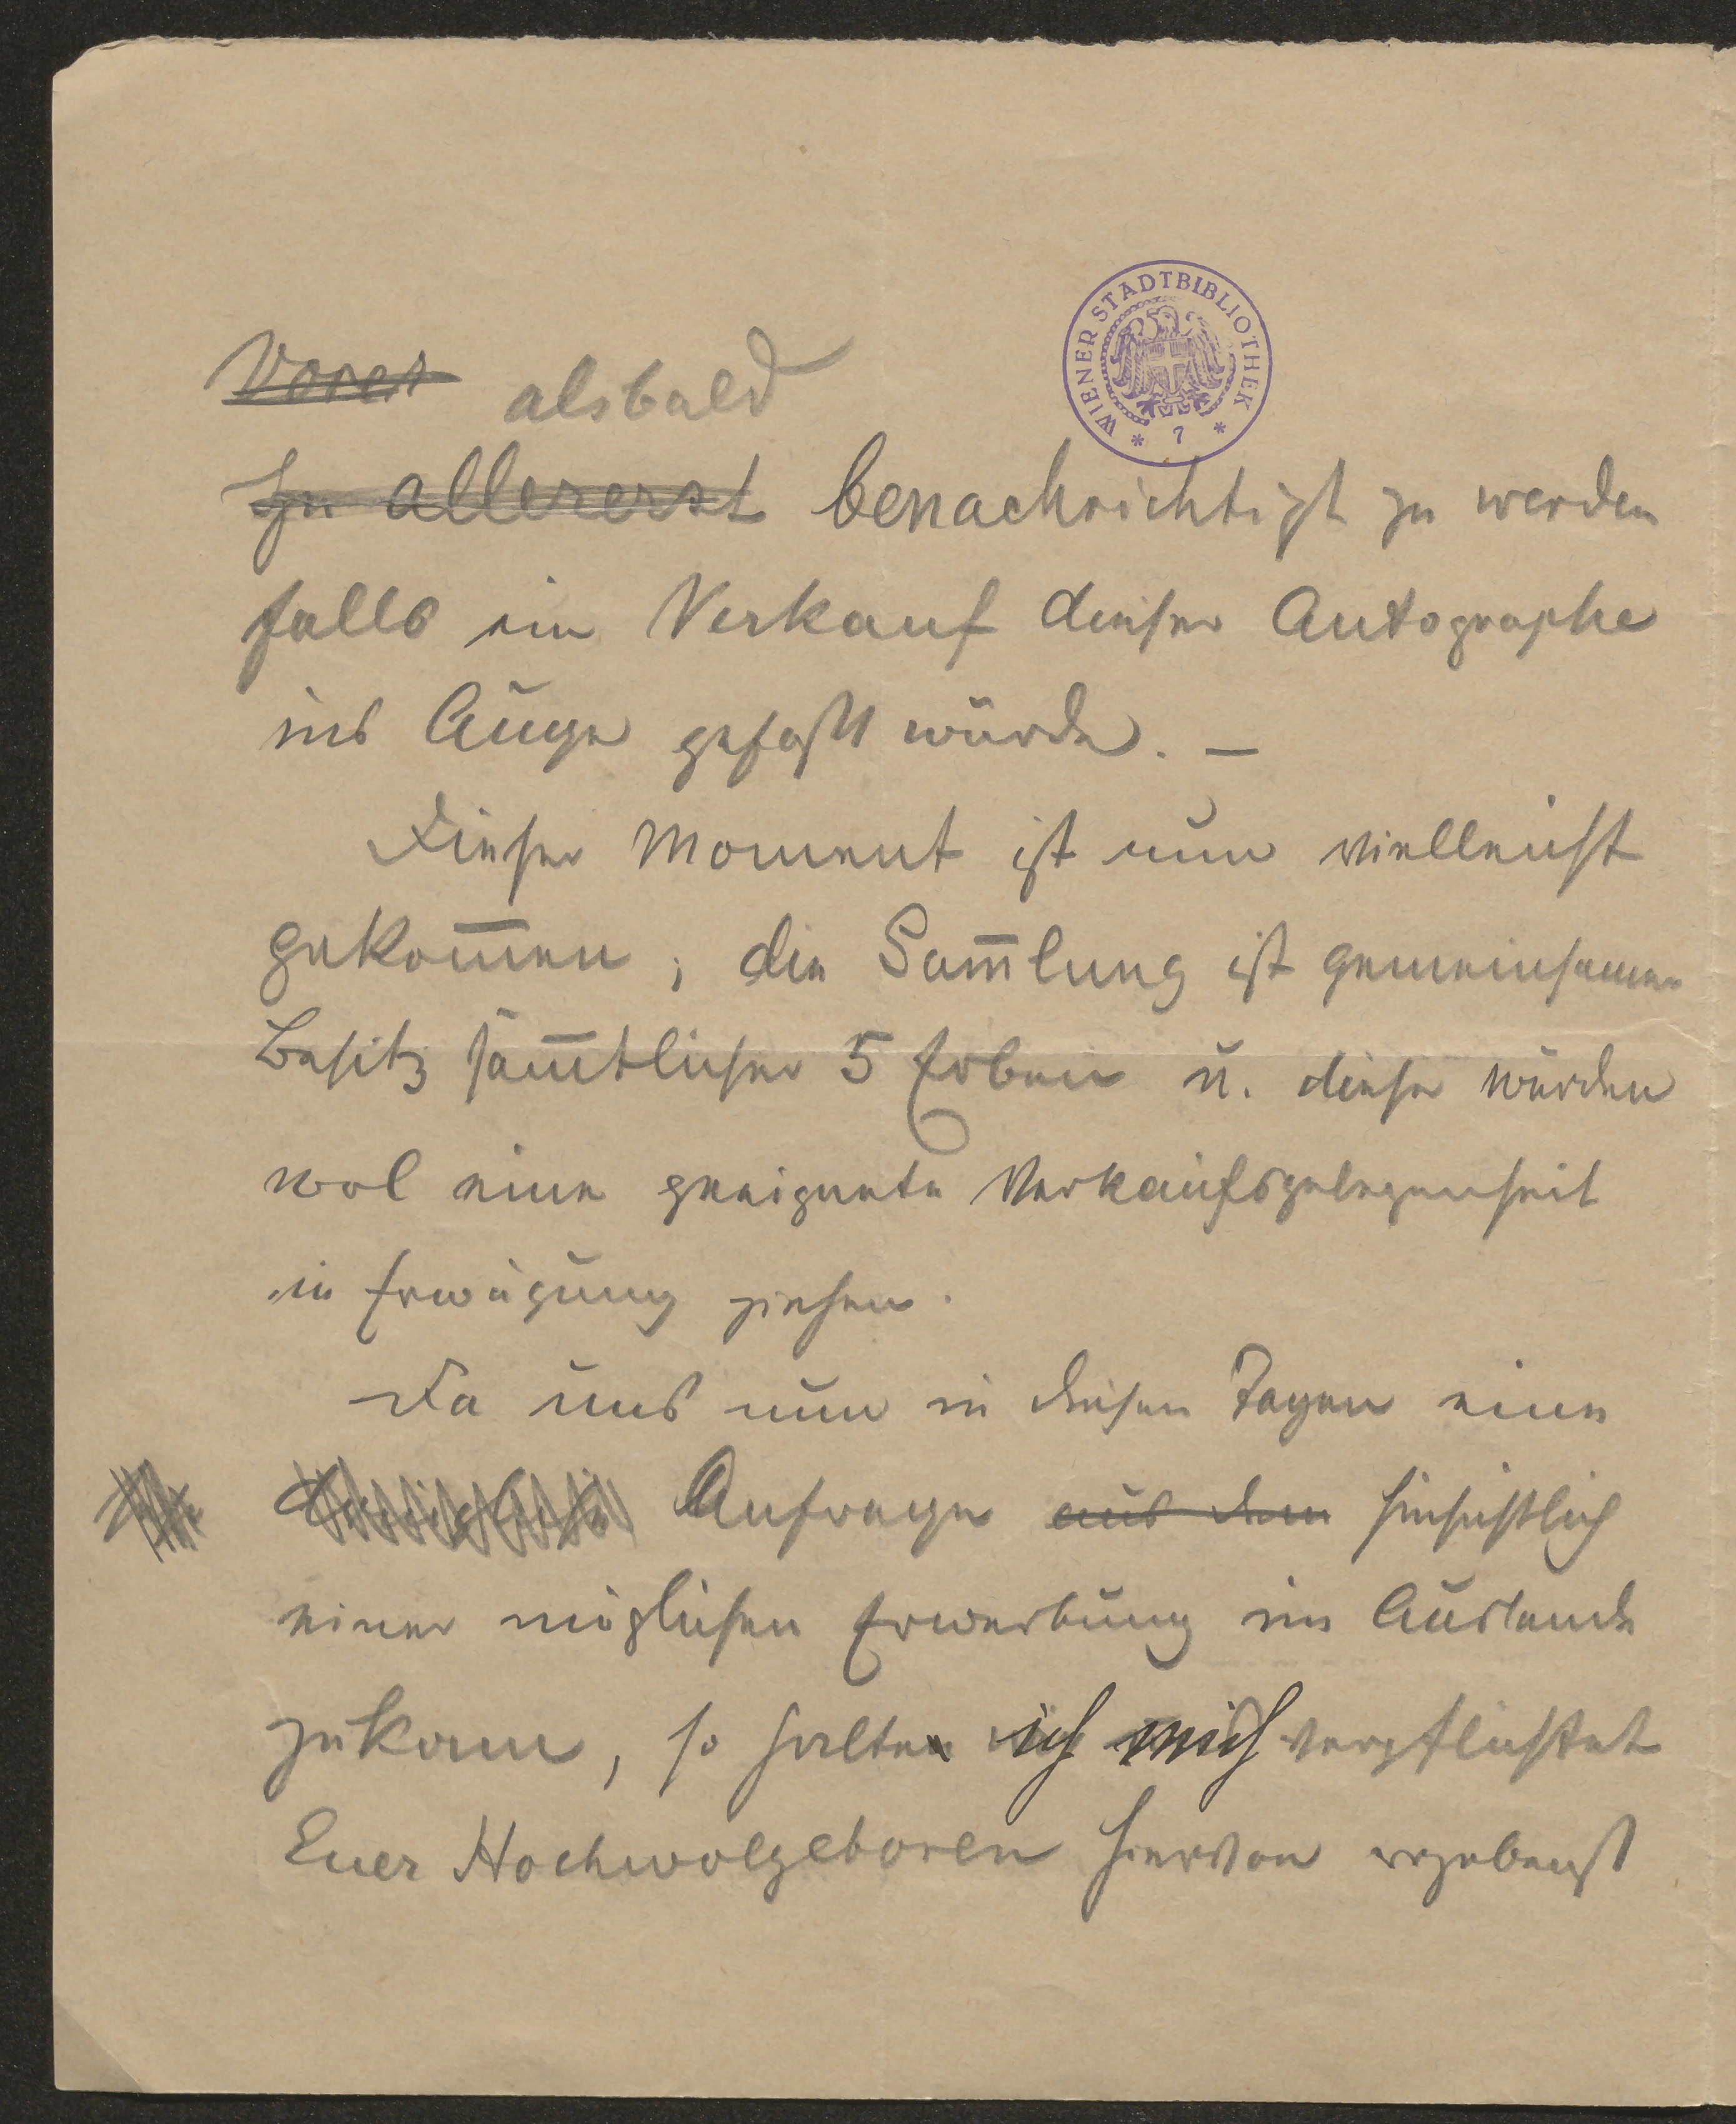 WIENER STADTBIBLIOTHEK
* 7 *
Vorer alsbald
Zu allererst benachrichtigt zu werden
falls ein Verkauf dieser Autographe
ins Auge gefaßt würde. —
Dieser Moment ist nun vielleicht
gekom̅en; die Sam̅lung ist gemeinsamer
Besitz säm̅tlicher 5 Erben u. diese würden
wol eine geeignete Verkaufsgelegenheit
in Erwägung ziehen.
Da uns nun in diesen Tagen eine
Anfrage aus dem hinsichtlich
einer möglichen Erwerbung im Auslande
zukam, so halte ich mich verpflichtet
Euer Hochwolgeboren hiervon ergebenst